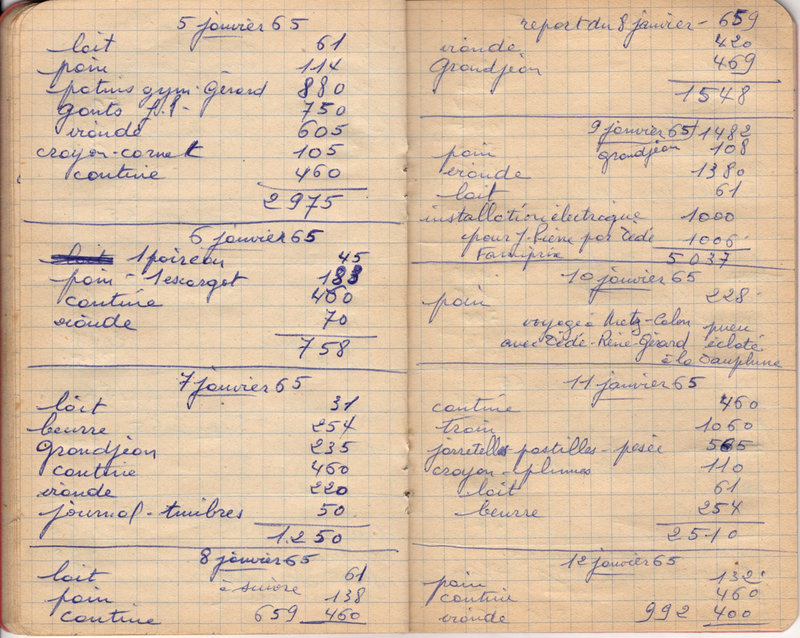 5 janvier 65
lait 61
pain 114
patins gym. Gérard 880
gants f.l. 750
viande 605
crayon-carnet 105
cantine 460
2975
6 janvier 65
1 poireau 45
pain - 1 escargot 183
cantine 460
viande 70
758
7 janvier 65
lait 31
beurre 254
Grandjean 235
cantine 460
viande 220
journal - timbres 50
1.250
8 janvier 65
lait 61
pain à suivre 138
cantine 659 460
report du 8 janvier - 659
viande 420
Grandjean 469
1548
9 janvier 65 1482
pain Grandjean 108
viande 1380
lait 61
installation électrique 1000
pour J. Pierre par Dédé 1006
Familprix 5037
10 janvier 65
pain 228
voyage à Metz-Colon pneu
avec Dédé-René-Gérard éclaté
à la Dauphine
11 janvier 65
cantine 460
train 1060
jarretelles pastilles - pesée 565
crayon - plumes 110
lait 61
beurre 254
2510
12 janvier 65
pain 132
cantine 460
viande 992 400